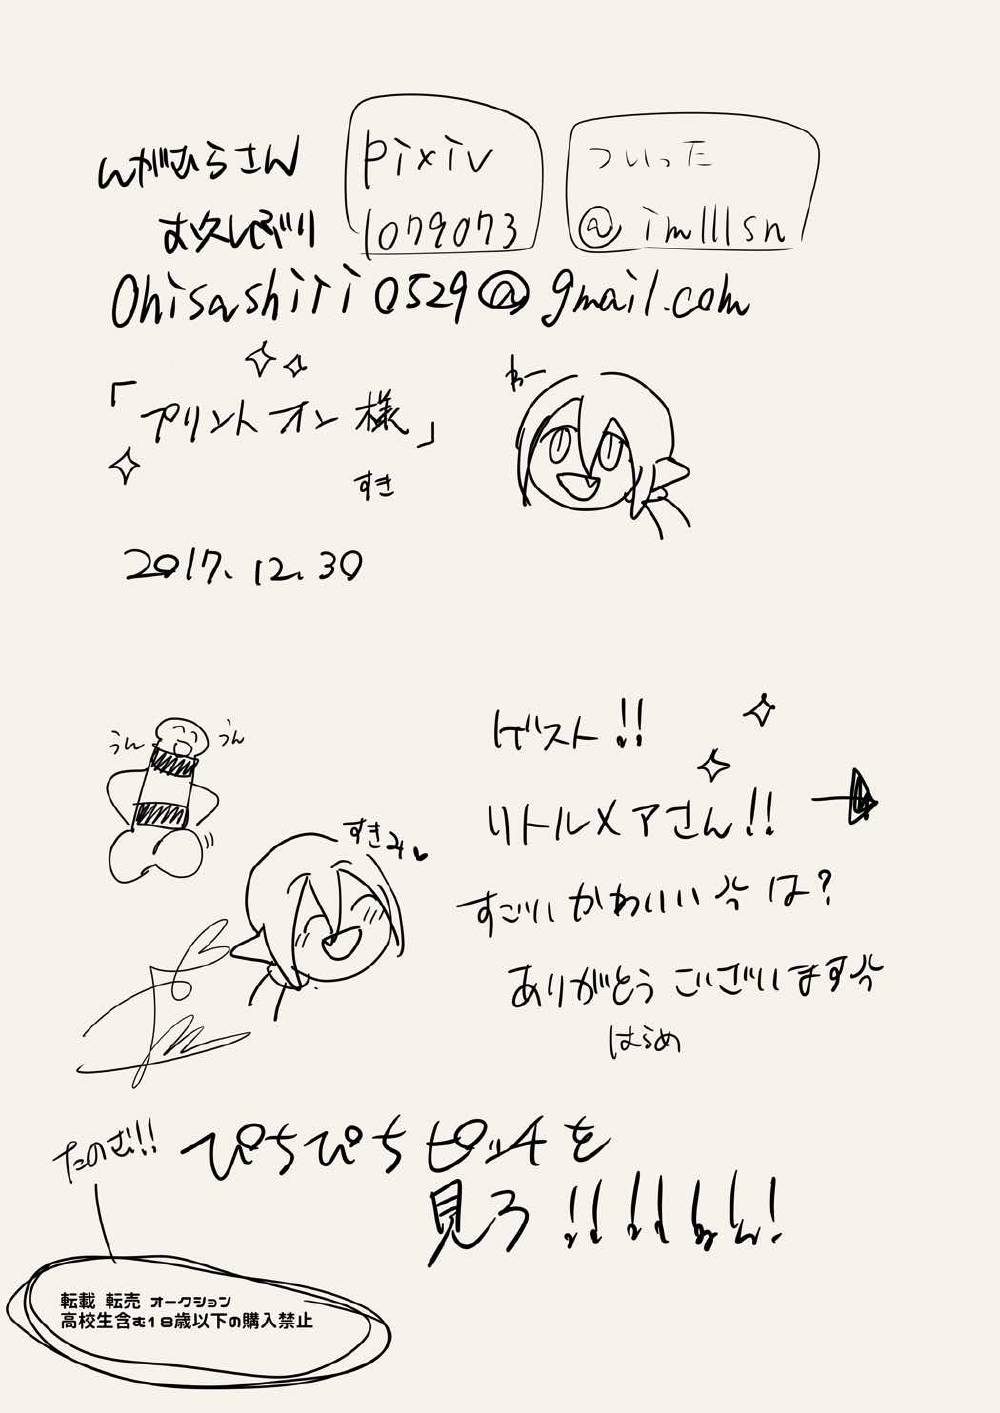 んがひらさん
お久しぶり
pixiv
1079073
ついった
@imlllsn
Ohisashiri0529@gmail.com
わー
「プリントオン様」
すき
2017.12.30
うん
うん
ゲスト!!
リトルメアさん!!
すきみ
すごいかわいい は?
ありがとうございます
はらめ
たのむ!!
ぴちぴちピッチを
見ろ
転載 転売 オークション
高校生含む18歳以下の購入禁止